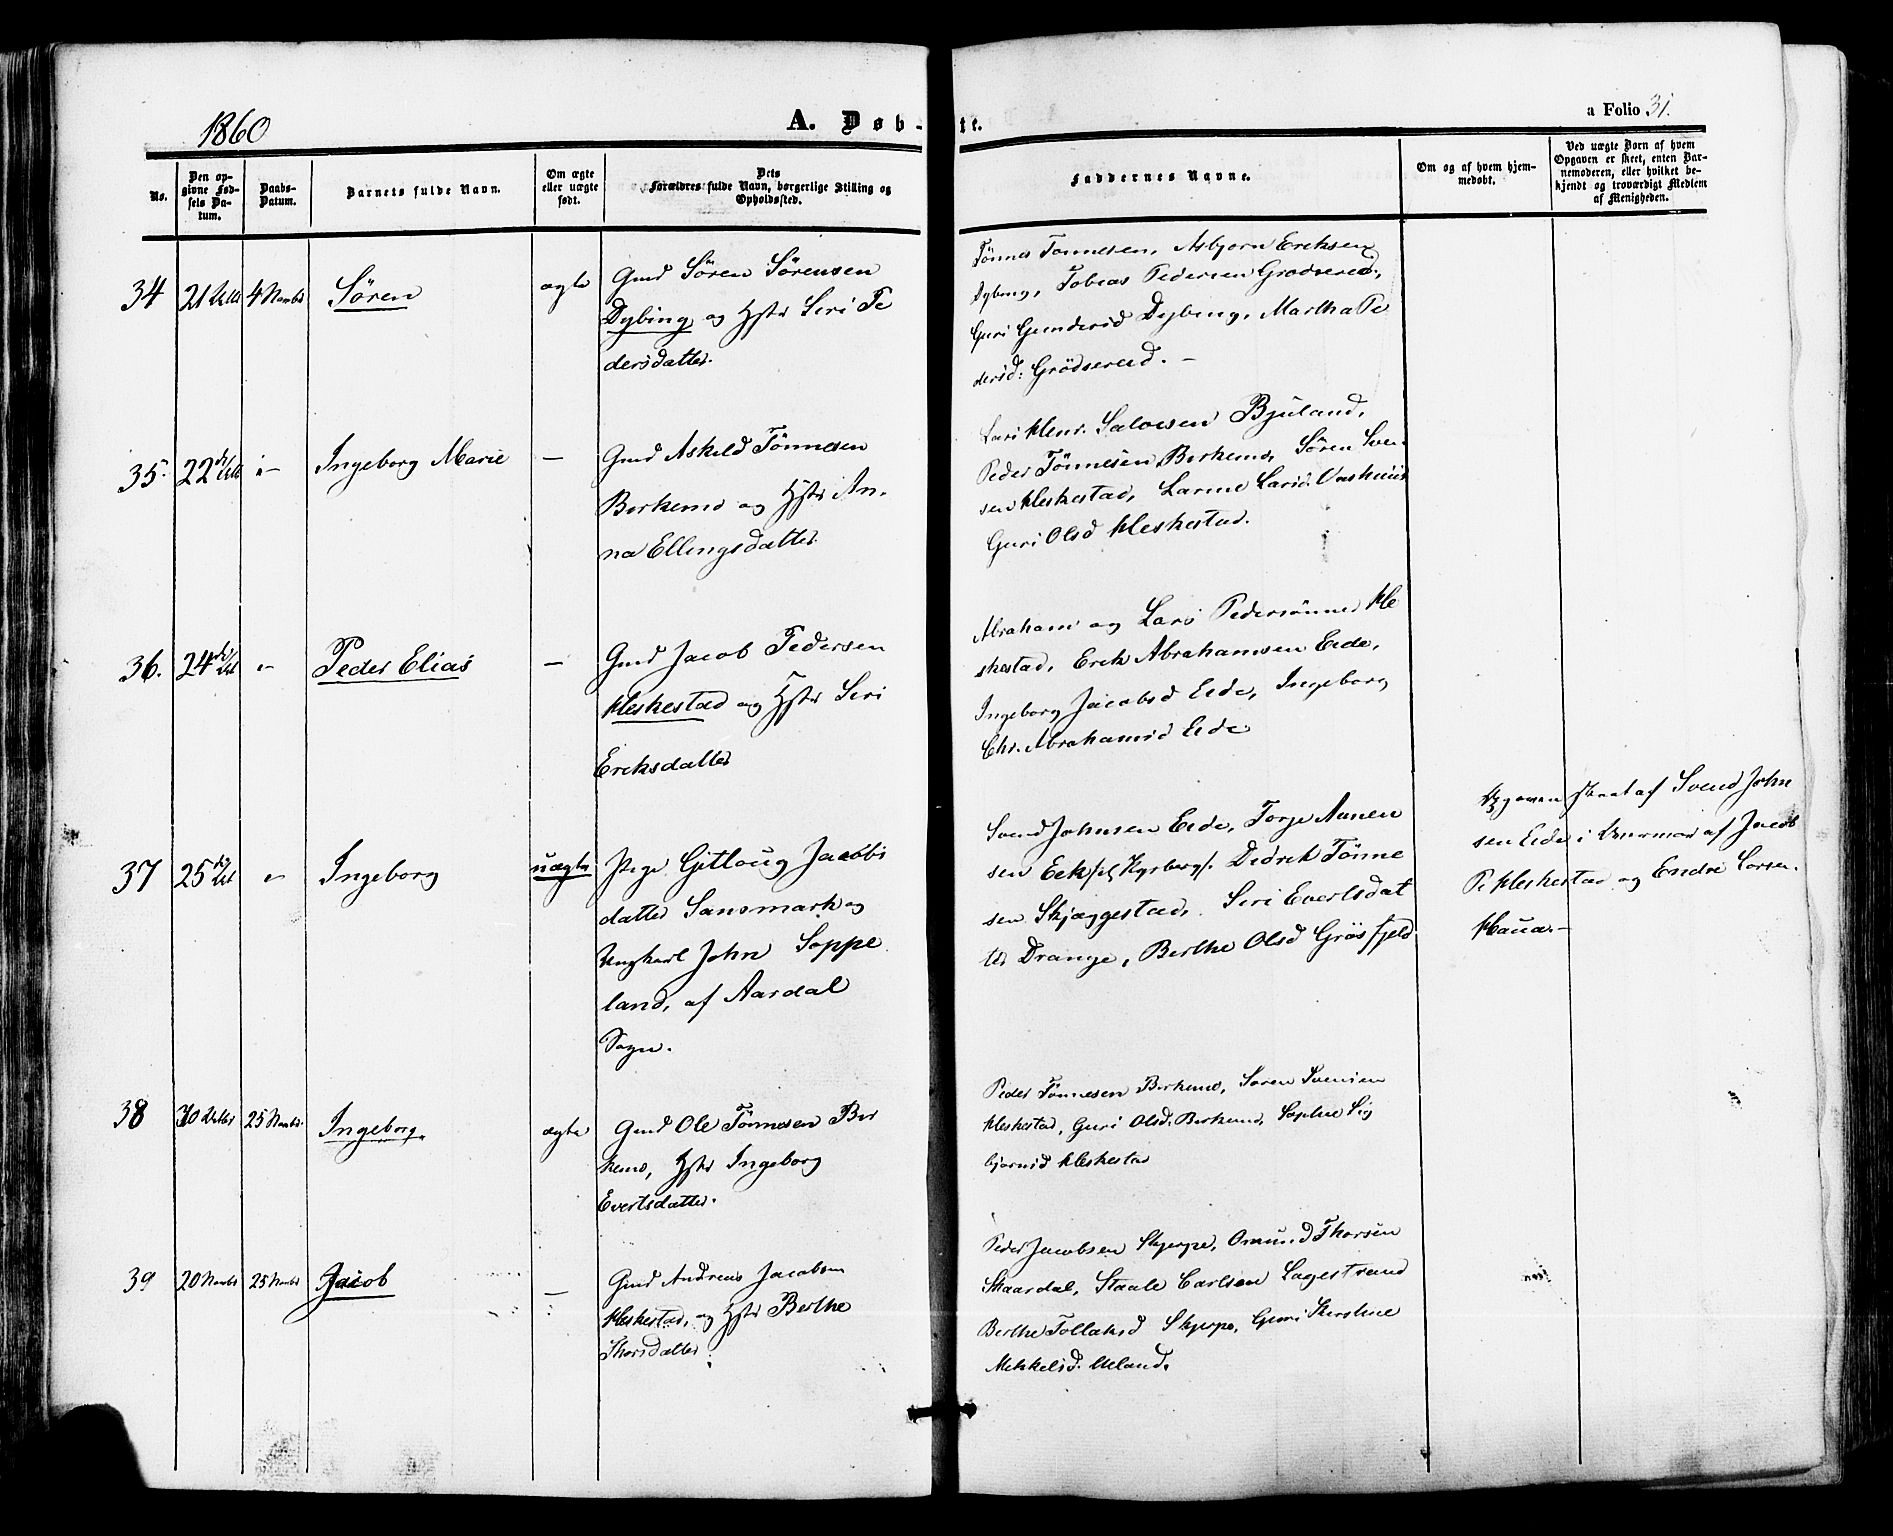 1860
A. Døb-
te.
a Folio 31.
No.
Den op-
givne Fød-
sels Da-
tum.
Daabs-
Datum.
Barnets fulde Navn.
Om ægte
eller uægte
født.
Dets
Forældres fulde Navn, borgerlige Stilling og
Opholdssted.
Faddernes Navne.
Om og af hvem hjem-
medøbt.
Ved uægte Born af hvem
Opgaven er skeet, enten Bar-
nemoderen, eller hvilket be-
kjendt og troværdigt Medlem
af Menigheden.
34
21
4 Novbr
Søren
ægte
Gmd Sören Sörensen
Dybing og Hstr Siri Pe
dersdatter.
Tönnes Tönnesen, Asbjørn Eriksen
Dybing, Tobias Pedersen Grödsereid,
Guri Gundersd Dybing, Martha Pe
dersd: Grödsereid. –
35.
22
Ingeborg Marie
–
Gmd Askild Tönnesen
Birkemo og Hstr An
na Ellingsdatter
Salvesen Bjuland,
Peder Tönnesen Birkemo, Sören Sven
sen Kleskestad,
Guri Olsd Kleskestad.
36.
24
Peder Elias
–
Gmd Jacob Pedersen
Kleskestad og Hstr Siri
Eriksdatter
Abraham og Lars Pedersönner Kle
skestad, Erik Abrahamsen Eide,
Ingeborg Jacobsd Eide, Ingeborg
Chr. Abrahamsd Eide
37
25
Ingeborg
uægte
Pige Gitloug Jacobs
datter Sandsmark og
Ungkarl John Soppe
land, af Aardal
Sogn.
Svend Johnsen Eide, Torje Aanen
sen Eek Didrik Tönne
sen Skjæggestad, Siri Evertsdat
ter Drange, Berthe Olsd Grösfjeld
Opgaven skeet af Svend John
sen Eide i Nærvær af Jacob
P. Kleskestad og Endre Larsen
Haua. –
38
30 Octbr
25 Novbr.
Ingeborg.
ægte
Gmd Ole Tönnesen Bir
kemo, Hstr Ingeborg
Evertsdatter.
Peder Tönnesen Birkemo, Sören Svensen
Kleskestad, Guri Olsd. Birkemo, Sophie Sig
bjørnsd Kleskestad
39
20 Novbr
25 Novbr
Jacob
–
Gmd Andreas Jacobsen
Kleskestad, og Hstr Berthe
Thorsdatter
Peder Jacobsen Skjerpe, Omund Thorsen
Skaardal, Staale Carlsen Lagestrand
Berthe Tollaksd Skjerpe, Guri Kirstine
Mikkelsd. Ueland.